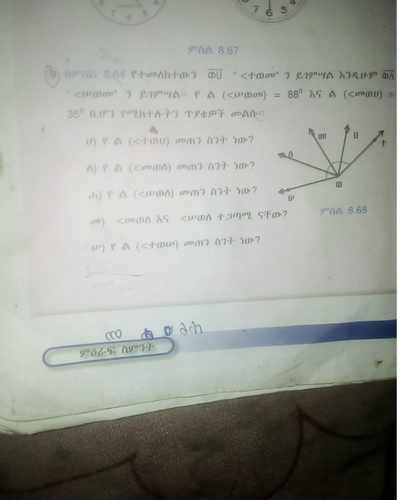 ምስል 8.67
በምስል 8.64 የተመለከተውን ወሀ "<ተወመ" ን ይገምሣል እንዲሁም ወለ
"<ሠወመ" ን ይገምሣል። የ ል (<ሠወመ) = 88⁰ እና ል (<መወሀ) =
35⁰ ቢሆን የሚከተሉትን ጥያቄዎች መልሱ።
ሀ) የ ል (<ተወሀ) መጠን ስንት ነው?
ለ) የ ል (<መወለ) መጠን ስንት ነው?
ሐ) የ ል (<ሠወለ) መጠን ስንት ነው?
መ) <መወለ እና <ሠወለ ተጋጣሚ ናቸው?
ሠ) የ ል (<ተወሠ) መጠን ስንት ነው?
መ ሀ ተ ለ ሠ ወ
ምስል 8.68
ምዕራፍ ስምንት